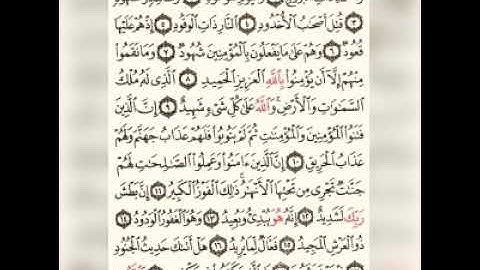 ۝٣ قُتِلَ أَصْحَٰبُ ٱلْأُخْدُودِ ۝٤ ٱلنَّارِ ذَاتِ ٱلْوَقُودِ ۝٥ إِذْ هُمْ عَلَيْهَا
قُعُودٌ ۝٦ وَهُمْ عَلَىٰ مَا يَفْعَلُونَ بِٱلْمُؤْمِنِينَ شُهُودٌ ۝٧ وَمَا نَقَمُوا۟
مِنْهُمْ إِلَّآ أَن يُؤْمِنُوا۟ بِٱللَّهِ ٱلْعَزِيزِ ٱلْحَمِيدِ ۝٨ ٱلَّذِى لَهُۥ مُلْكُ
ٱلسَّمَٰوَٰتِ وَٱلْأَرْضِ ۚ وَٱللَّهُ عَلَىٰ كُلِّ شَىْءٍ شَهِيدٌ ۝٩ إِنَّ ٱلَّذِينَ
فَتَنُوا۟ ٱلْمُؤْمِنِينَ وَٱلْمُؤْمِنَٰتِ ثُمَّ لَمْ يَتُوبُوا۟ فَلَهُمْ عَذَابُ جَهَنَّمَ وَلَهُمْ
عَذَابُ ٱلْحَرِيقِ ۝١٠ إِنَّ ٱلَّذِينَ ءَامَنُوا۟ وَعَمِلُوا۟ ٱلصَّٰلِحَٰتِ لَهُمْ
جَنَّٰتٌ تَجْرِى مِن تَحْتِهَا ٱلْأَنْهَٰرُ ۚ ذَٰلِكَ ٱلْفَوْزُ ٱلْكَبِيرُ ۝١١ إِنَّ بَطْشَ
رَبِّكَ لَشَدِيدٌ ۝١٢ إِنَّهُۥ هُوَ يُبْدِئُ وَيُعِيدُ ۝١٣ وَهُوَ ٱلْغَفُورُ ٱلْوَدُودُ ۝١٤
ذُو ٱلْعَرْشِ ٱلْمَجِيدُ ۝١٥ فَعَّالٌ لِّمَا يُرِيدُ ۝١٦ هَلْ أَتَىٰكَ حَدِيثُ ٱلْجُنُودِ